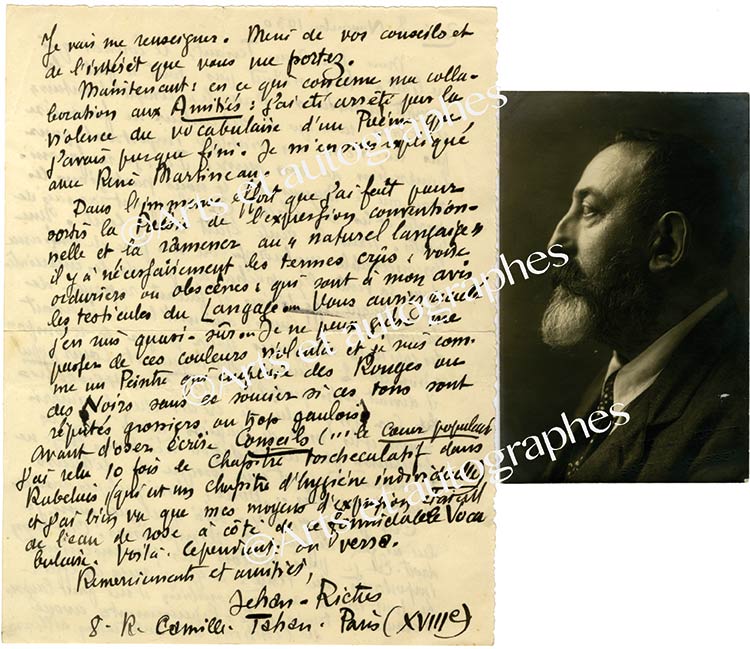 Je vais me renseigner. Merci de vos conseils et
de l'intérêt que vous me portez.
Maintenant : en ce qui concerne ma colla-
boration aux Amitiés : j'ai été arrêté par la
violence du vocabulaire d'un Poème que
j'avais presque fini. Je m'en suis expliqué
avec René Martineau.
Dans l'immense effort que j'ai fait pour
sortir la Poésie de l'expression convention-
nelle et la ramener au "naturel langaige"
il y a nécessairement les termes crus, voire
orduriers ou obscènes : qui sont à mon avis
les testicules du Langage. Vous aussi
j'en suis quasi-sûr. Je ne peux me
passer de ces couleurs violentes et je suis com-
me un Peintre qui emploie des Rouges ou
des Noirs sans se soucier si ces tons sont
réputés grossiers ou trop gaulois)
Avant d'oser écrire Conseils (... le cœur populaire
j'ai relu 10 fois le Chapitre torcheculatif dans
Rabelais (qui est un chapitre d'hygiène individuelle)
et j'ai bien vu que mes moyens d'expression
de l'eau de rose à côté de ce formidable Voca
bulaire. Voilà. Cependant : on verra.
Remerciements et amitiés,
Jehan-Rictus
8. R. Camille-Tahan. Paris (XVIIIe)
©Arts et autographes
©Arts et autographes
©Arts et autographes
©Arts et autographes